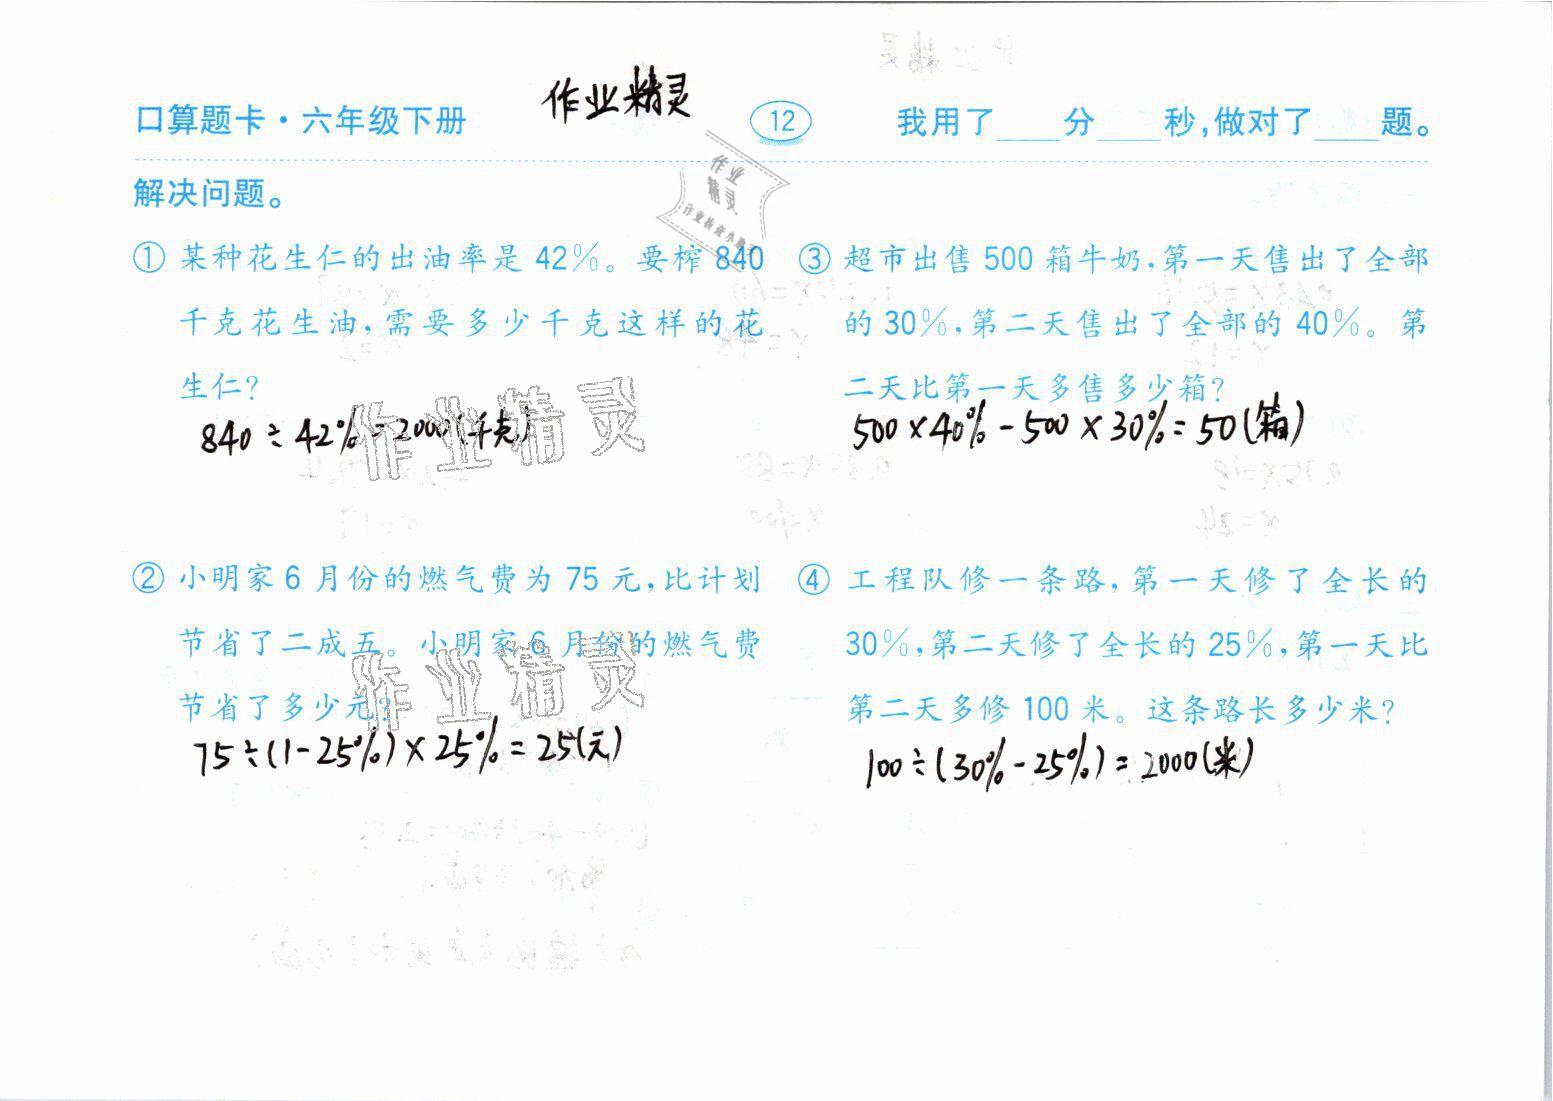 作业精灵
口算题卡·六年级下册
12
我用了____分____秒,做对了____题。
解决问题。
① 某种花生仁的出油率是42%。要榨840
千克花生油,需要多少千克这样的花
生仁?
840÷42%=2000(千克)
② 小明家6月份的燃气费为75元,比计划
节省了二成五。小明家6月份的燃气费
节省了多少元?
75÷(1-25%)×25%=25(元)
③ 超市出售500箱牛奶,第一天售出了全部
的30%,第二天售出了全部的40%。第
二天比第一天多售多少箱?
500×40%-500×30%=50(箱)
④ 工程队修一条路,第一天修了全长的
30%,第二天修了全长的25%,第一天比
第二天多修100米。这条路长多少米?
100÷(30%-25%)=2000(米)
作业
精灵
作业精灵
作业精灵